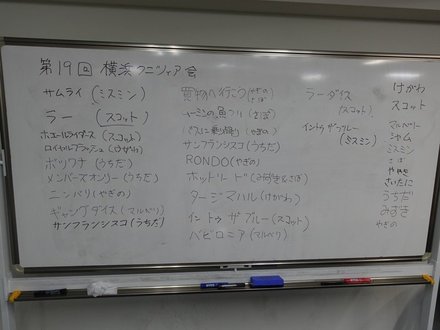 第19回 横浜クニツィア会
サムライ(ミスミン)
ラー (スコット)
ホエールライダーズ(スコット)
ロイヤルフラッシュ(けがわ)
ポツワナ(うちだ)
メンバーズオンリー(うちだ)
ニンバリ(やぎの)
ギャングダイス(マルベリ)
サンフランシスコ(うちだ)
買物へ行こう(やぎの さぼ)
の魚つり(さぼ)
バスに乗り
サンフランシスコ(うちだ)
RONDO(やぎの)
ホットリード(みずき&さぼ)
タージマハル(けがわ)
イントゥザブルー(スコット)
バビロニア(マルベリ)
ラーダイス
(スコット)
イントゥザブルー
(ミスミン)
けがわ
スコット
マルベリー
シャム
ミスミン
さぼ
さいたに
うちだ
みずき
やぎの